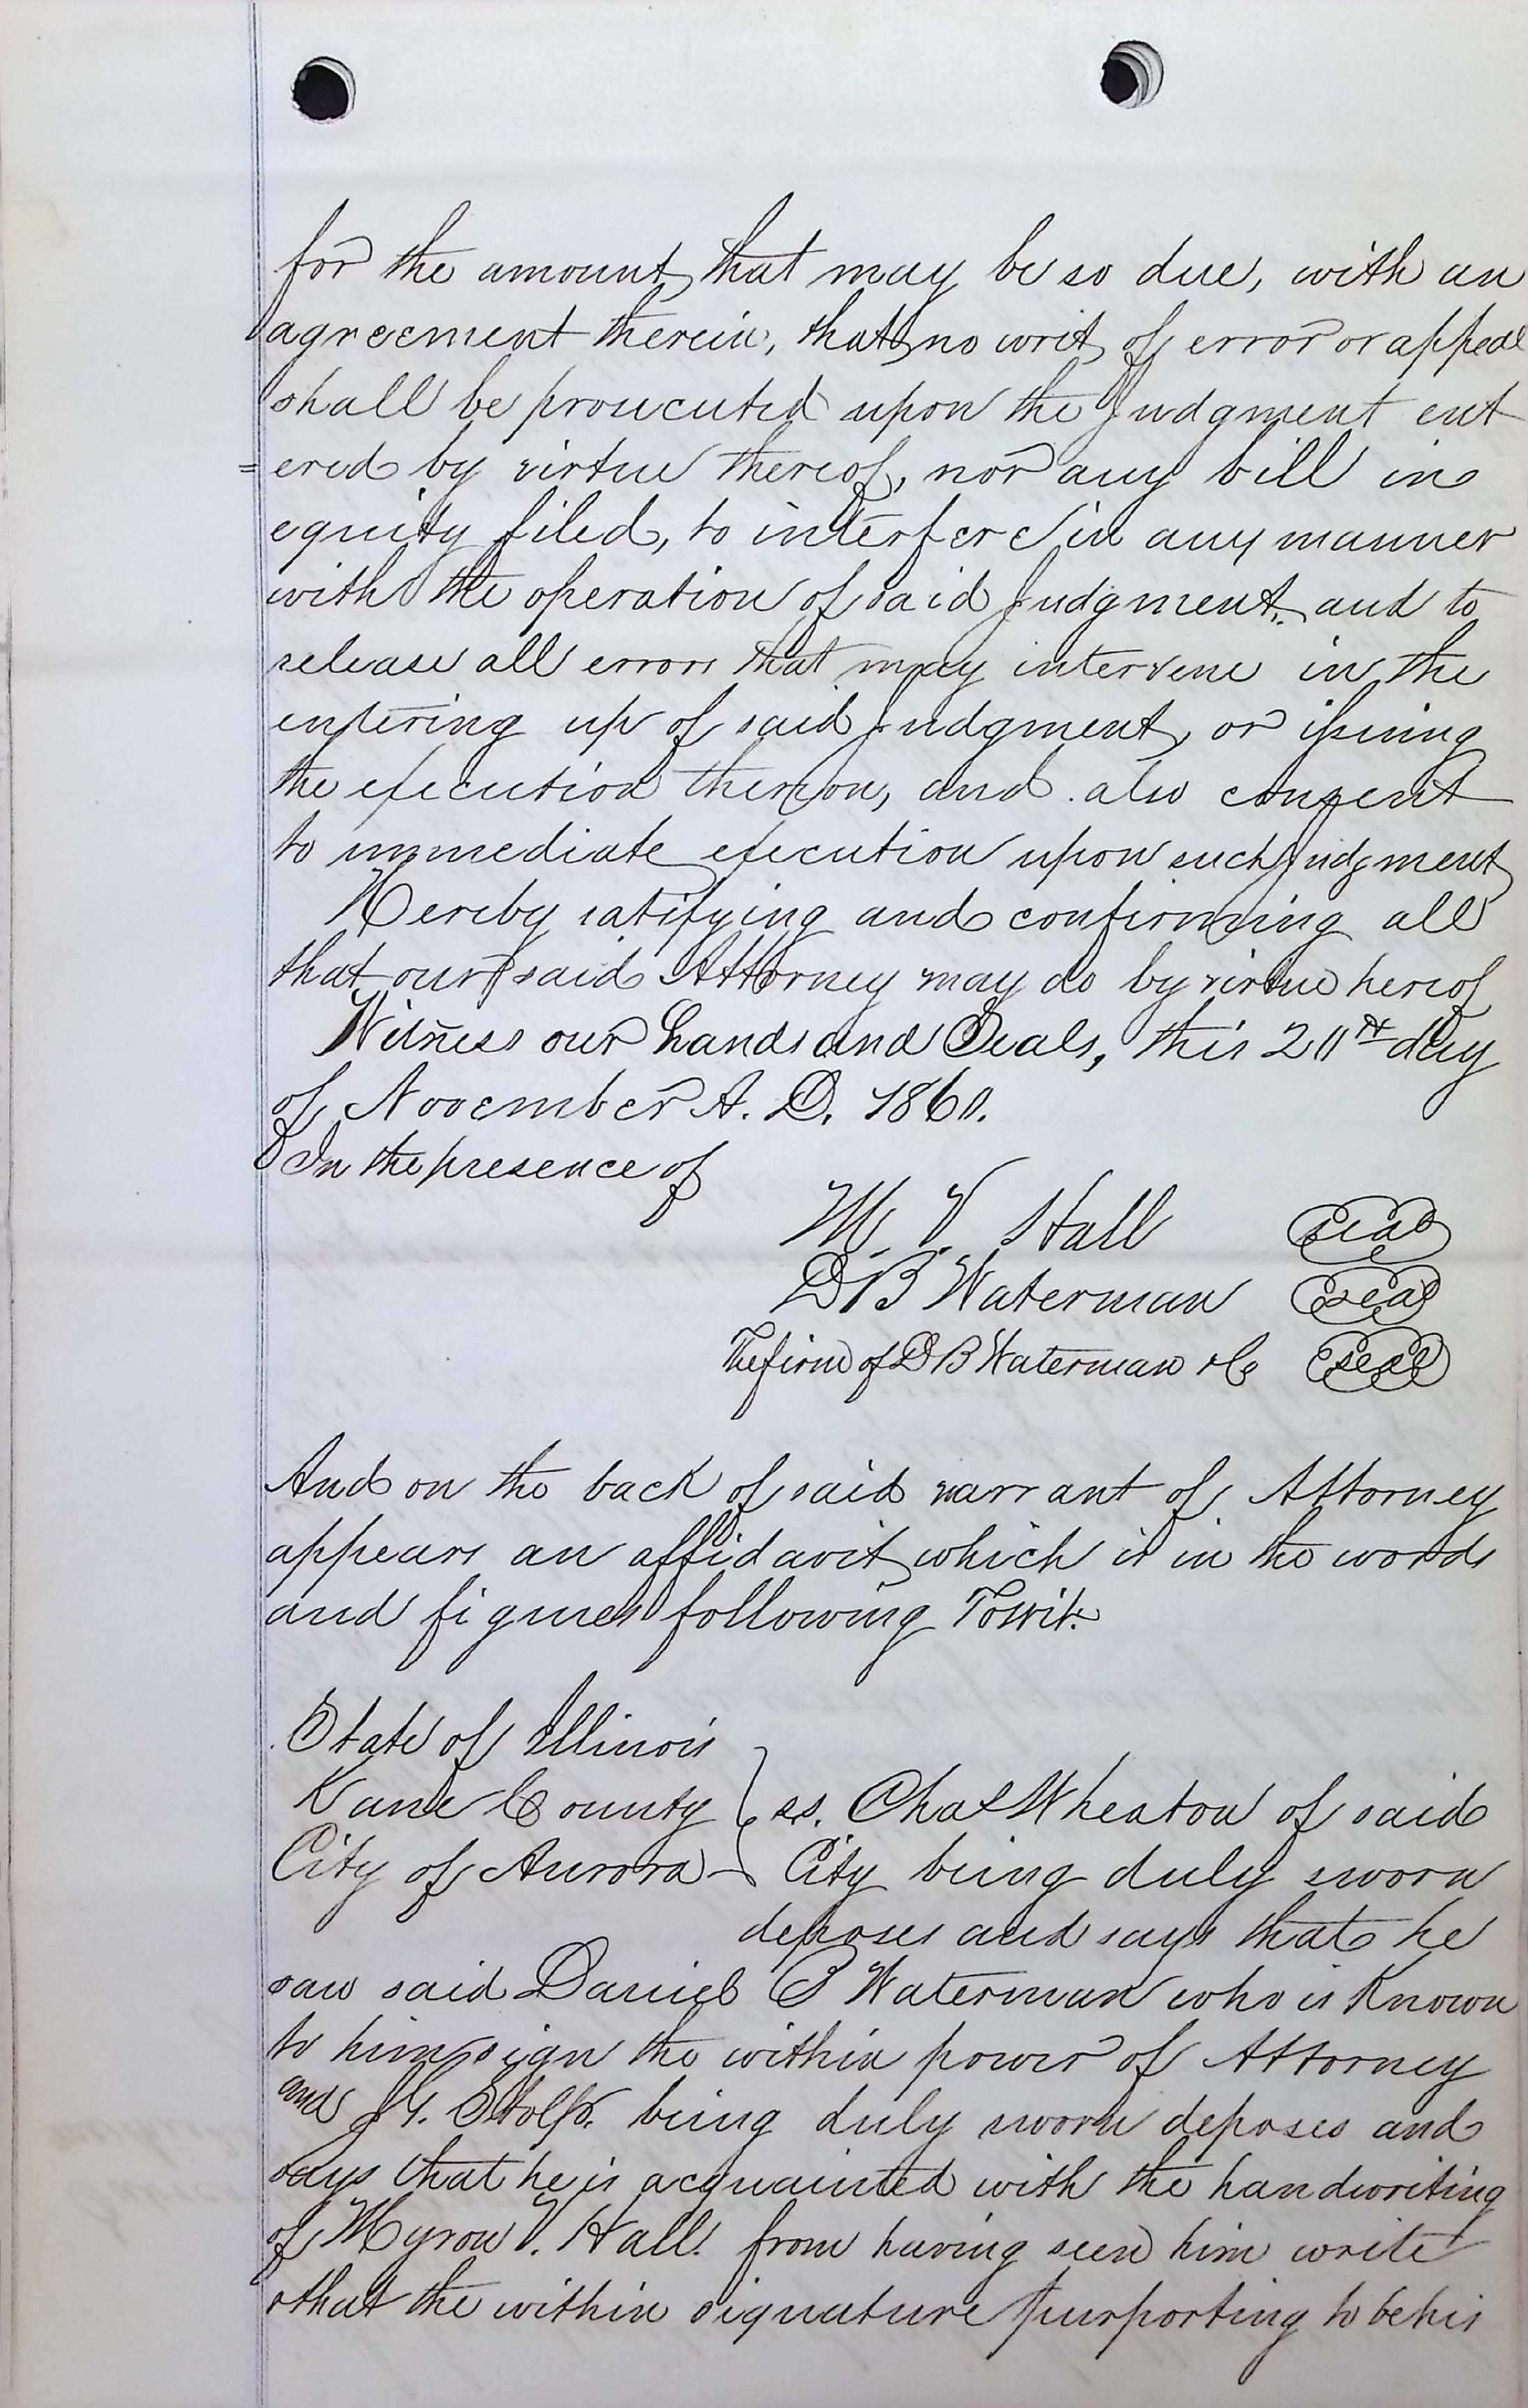 for the amount, that may be so due, with an
agreement therein, that no writ of error or appeal
shall be prosecuted upon the Judgment ent
=ered by virtue thereof, nor any bill in
equity filed, to interfere in any manner
with the operation of said Judgment, and to
release all errors that may intervene in the
entering up of said Judgment, or issuing
the execution thereon, and also consent
to immediate execution upon such Judgment
Hereby ratifying and confirming all
that our said Attorney may do by virtue hereof
Witness our hands and Seals, this 20th day
of November A. D. 1860.
In the presence of
M. V. Hall seal
D B Waterman seal
The firm of D B Waterman & Co seal
And on the back of said warrant of Attorney
appears an affidavit which is in the words
and figures following Towit:
State of Illinois
Kane County } ss. Chas Wheaton of said
City of Aurora City being duly sworn
deposes and says that he
saw said Daniel B Waterman who is Known
to him sign the within power of Attorney
and J. G. Stolp. being duly sworn deposes and
says that he is acquainted with the handwriting
of Myron V. Hall. from having seen him write
& that the within signature purporting to be his